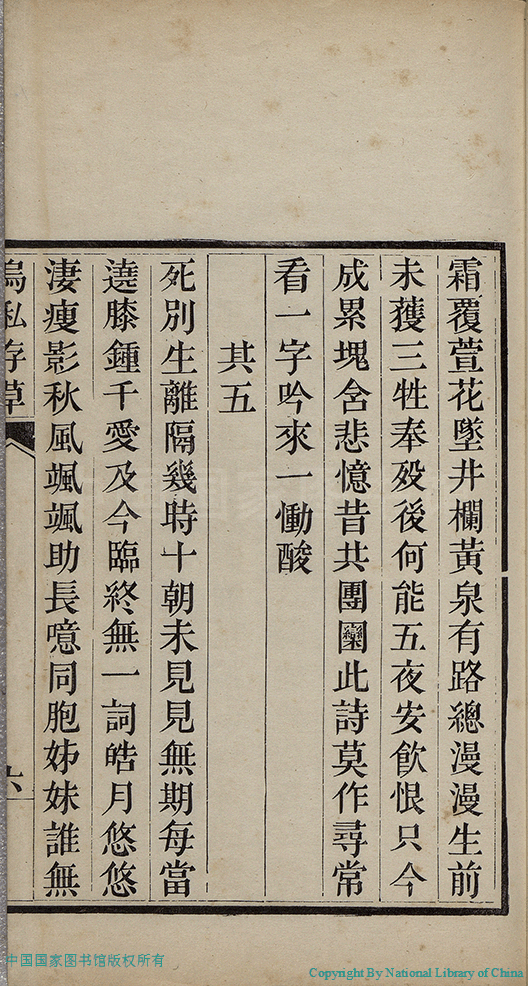 霜覆萱花墜井欄黃泉有路總漫漫生前
未獲三牲奉歿後何能五夜安飲恨只今
成累塊含悲憶昔共團圞此詩莫作尋常
看一字吟來一慟酸
其五
死別生離隔幾時十朝未見見無期每當
遶膝鍾千愛及今臨終無一詞皓月悠悠
淒瘦影秋風颯颯助長噫同胞姊妹誰無
烏私存草
六
中国国家图书馆版权所有
Copyright By National Library of China